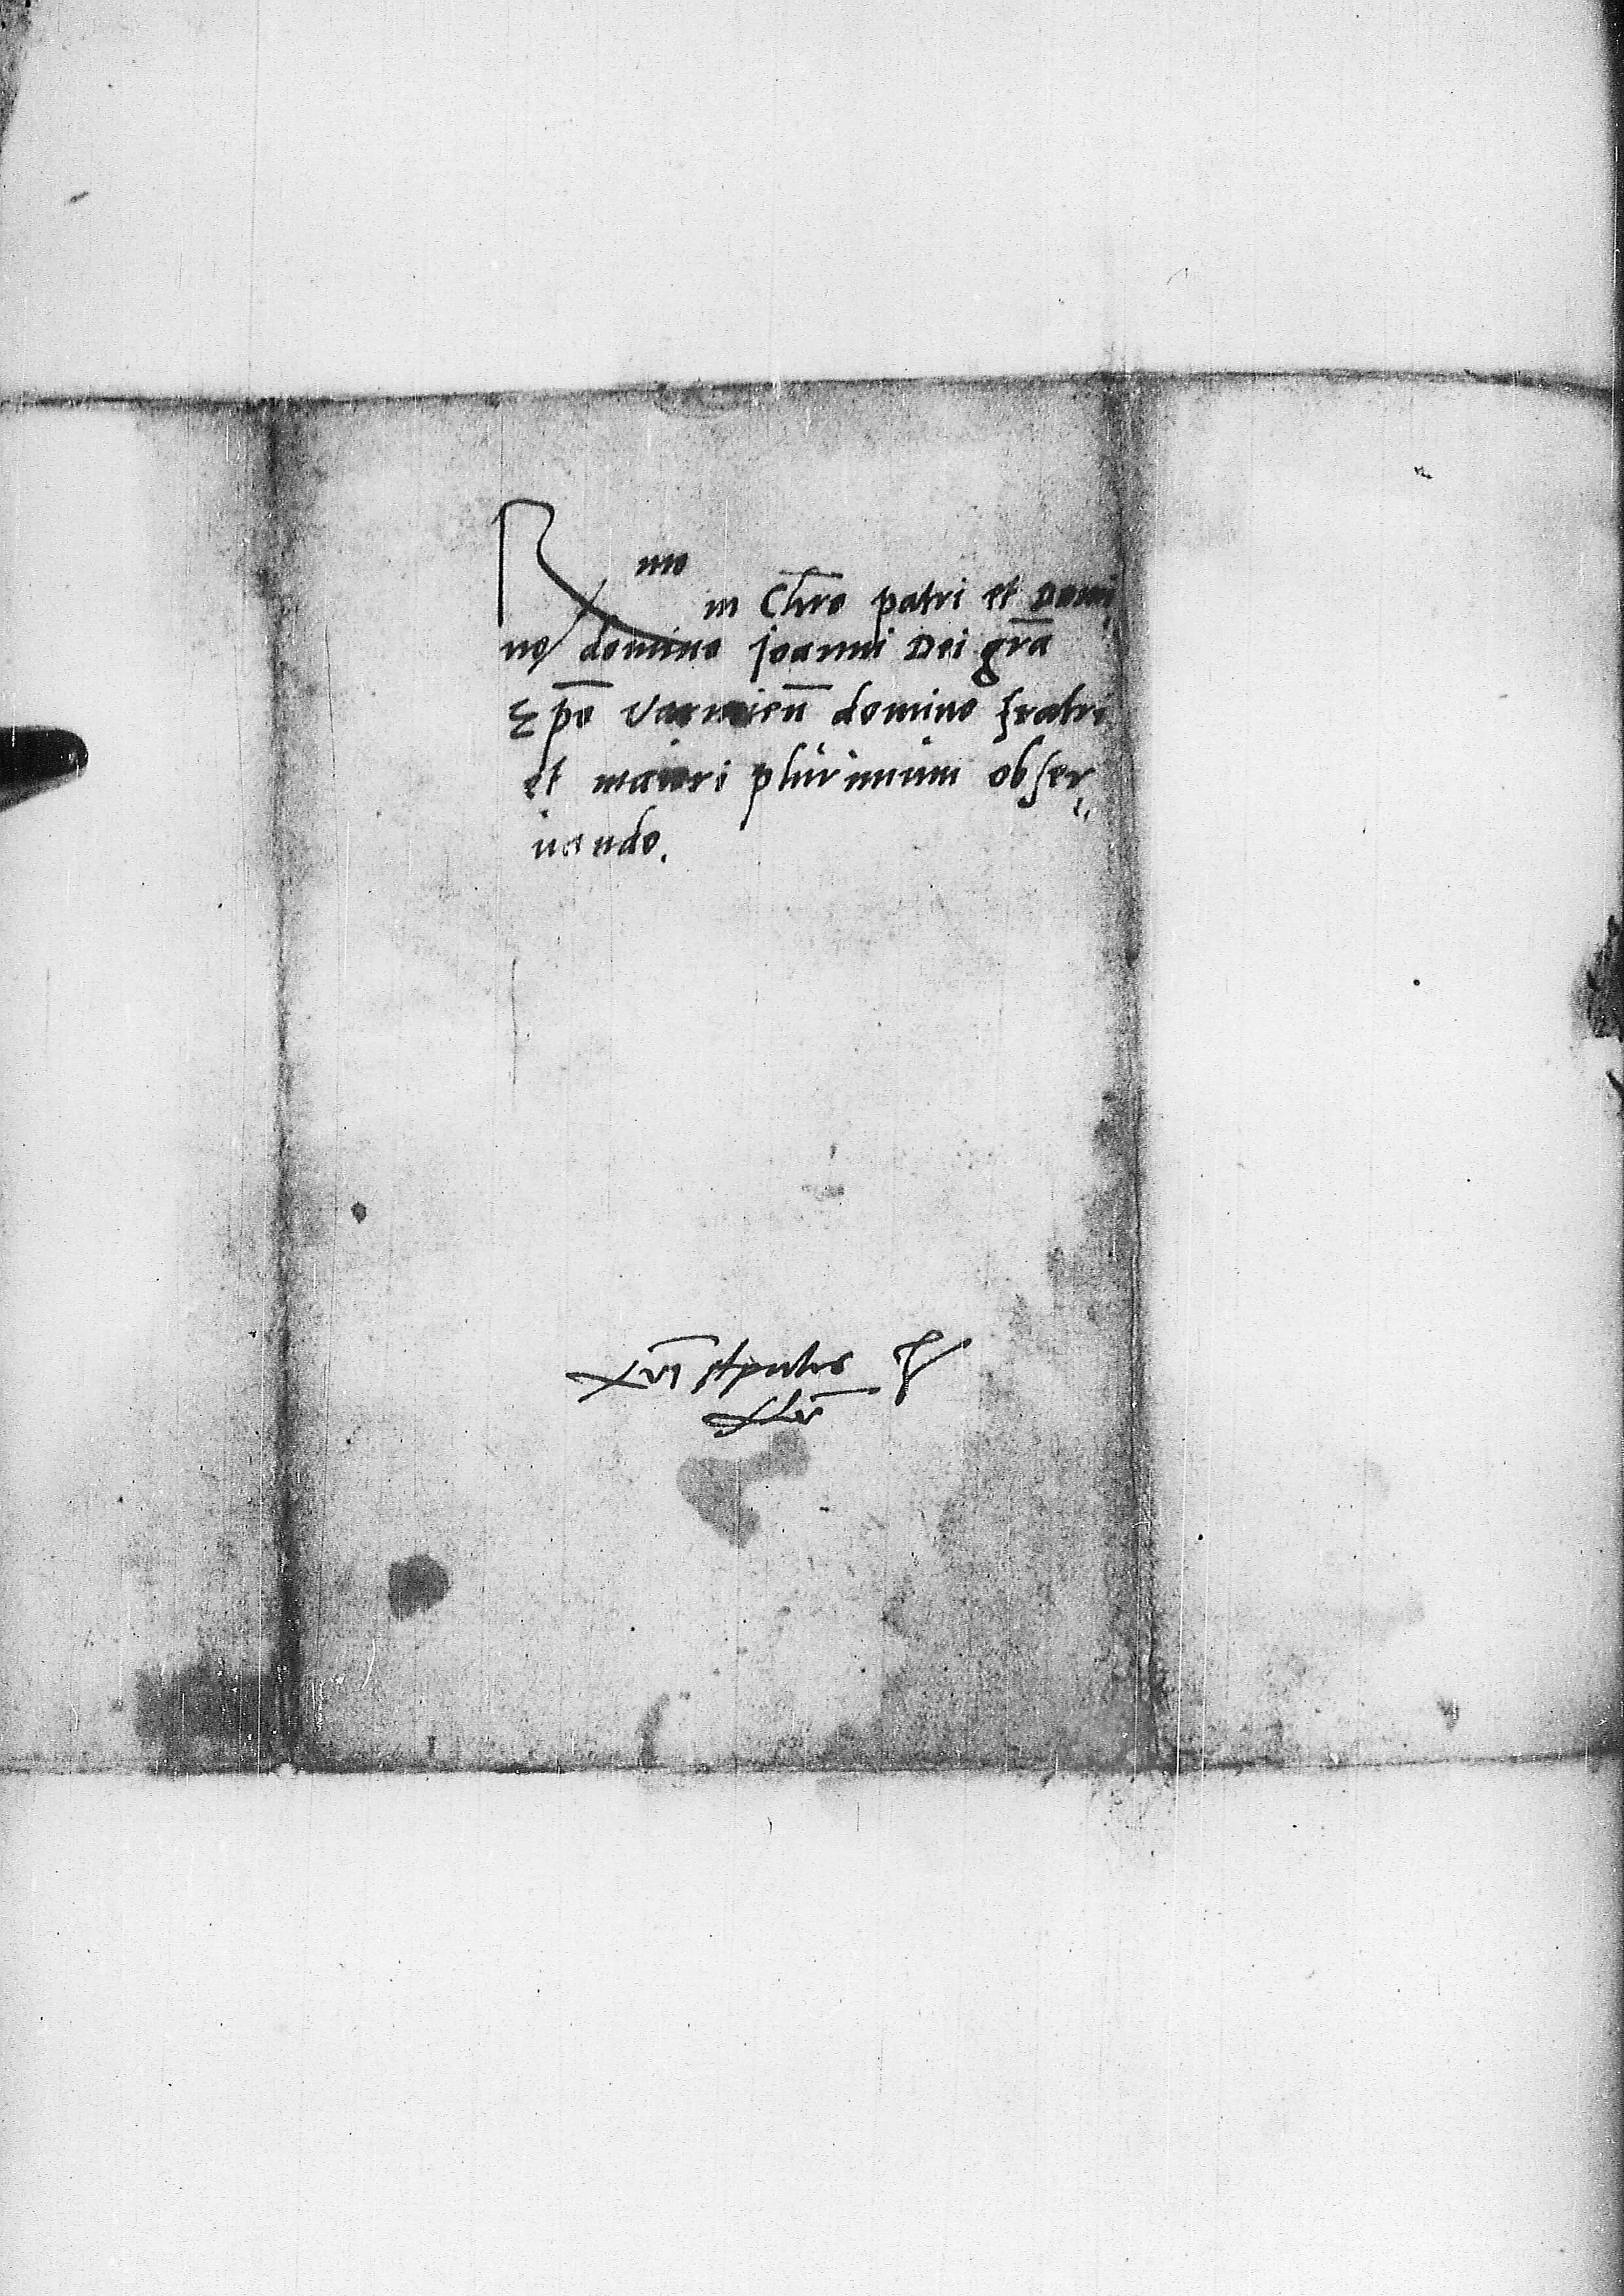 R mo
in Chro patri et Domi
no domino Joanni Dei gra
Epo Varmien domino fratri
et maiori plurimum obser
uando.
XVI
XLV